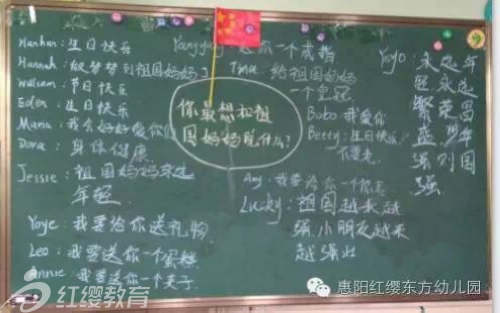 Hanhan：生日快乐
Hannah：
祖国妈妈了
William：节日快乐
Eden：生日快乐
Maria：我会好好爱你
Dora：身体健康
Jessie：祖国妈妈永远
年轻
Yoye：我要给你送礼物
Leo：我要送你一个蛋糕
Annie：我要送你一个夹子
Yangyang
一个戒指
Tina：给祖国妈妈
一个皇冠
你最想和祖
国妈妈说什么？
Bobo：我爱你
Betty：生日快乐
不要老
Amy：我要给你一个
Lucky：祖国越长越
强 小朋友越来
越强壮
Yoyo：永远年
轻 永远
繁荣昌
盛
强
国
强
红缨教育
惠阳红缨东方幼儿园